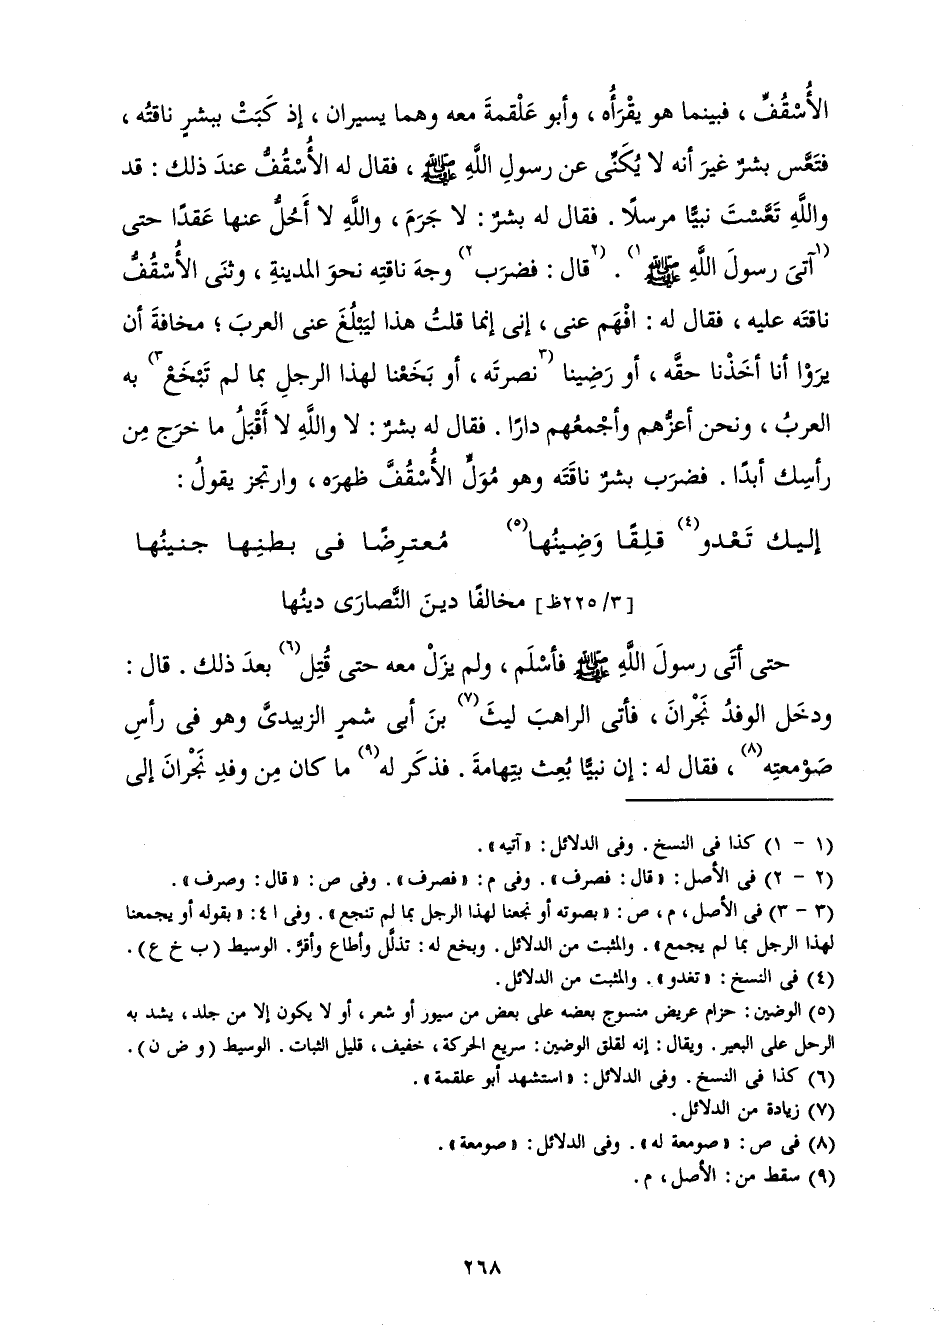 الأُسْقُفِّ ، فبينما هو يقْرَأُه ، وأبو عَلْقمةَ معه وهما يسيران ، إذ كَبَتْ ببشرٍ ناقتُه ،
فتَعَّس بشرٌ غيرَ أنه لا يُكَنِّى عن رسولِ اللَّهِ ﷺ ، فقال له الأُسْقُفُّ عندَ ذلك : قد
واللَّهِ تَعَّسْتَ نبيًّا مرسلًا . فقال له بشرٌ : لا جَرَمَ ، واللَّهِ لا أَحُلُّ عنها عَقدًا حتى
(١آتىَ رسولَ اللَّهِ ﷺ١) . (٢قال : فضرَب٢) وجهَ ناقتِه نحوَ المدينةِ ، وثنَى الأُسْقُفُّ
ناقتَه عليه ، فقال له : افْهَم عنى ، إنى إنما قلتُ هذا ليَبْلُغَ عنى العربَ ؛ مخافةَ أن
يرَوْا أنا أخَذْنا حقَّه ، أو رَضِينا (٣نصرتَه ، أو بَخَعْنا لهذا الرجلِ بما لم تَبْخَعْ٣) به
العربُ ، ونحن أعزُّهم وأجْمعُهم دارًا . فقال له بشرٌ : لا واللَّهِ لا أَقْبَلُ ما خرَج مِن
رأسِك أبدًا . فضرَب بشرٌ ناقَتَه وهو مُوَلٍّ الأُسْقُفَّ ظهرَه ، وارتجز يقولُ :
إليك تَعْدو(٤) قلِقًا وَضِينُها(٥) مُعترِضًا فى بطنِها جنينُها
[٢٢٥/٣ظ] مخالفًا دينَ النَّصارَى دينُها
حتى أتَى رسولَ اللَّهِ ﷺ فأسْلَم ، ولم يزَلْ معه حتى قُتِل(٦) بعدَ ذلك . قال :
ودخَل الوفدُ نَجْرانَ ، فأتى الراهبَ ليثَ(٧) بنَ أبى شمرٍ الزبيدىَّ وهو فى رأسِ
صَوْمعتِه(٨) ، فقال له : إن نبيًّا بُعِث بتِهامةَ . فذكَر له(٩) ما كان مِن وفدِ نَجْرانَ إلى
(١ - ١) كذا فى النسخ . وفى الدلائل : «آتيه» .
(٢ - ٢) فى الأصل : «قال : فصرف» . وفى م : «فصرف» . وفى ص : «قال : وصرف» .
(٣ - ٣) فى الأصل ، م ، ص : «بصوته أو نجعنا لهذا الرجل بما لم تنجع» . وفى ا ٤ : «بقوله أو يجمعنا
لهذا الرجل بما لم يجمع» . والمثبت من الدلائل . وبخع له : تذلَّل وأطاع وأقرَّ . الوسيط (ب خ ع) .
(٤) فى النسخ : «تغدو» . والمثبت من الدلائل .
(٥) الوضين : حزام عريض منسوج بعضه على بعض من سيور أو شعر ، أو لا يكون إلا من جلد ، يشد به
الرحل على البعير . ويقال : إنه لقلق الوضين : سريع الحركة ، خفيف ، قليل الثبات . الوسيط (و ض ن) .
(٦) كذا فى النسخ . وفى الدلائل : «استشهد أبو علقمة» .
(٧) زيادة من الدلائل .
(٨) فى ص : «صومعة له» . وفى الدلائل : «صومعة» .
(٩) سقط من : الأصل ، م .
٢٦٨